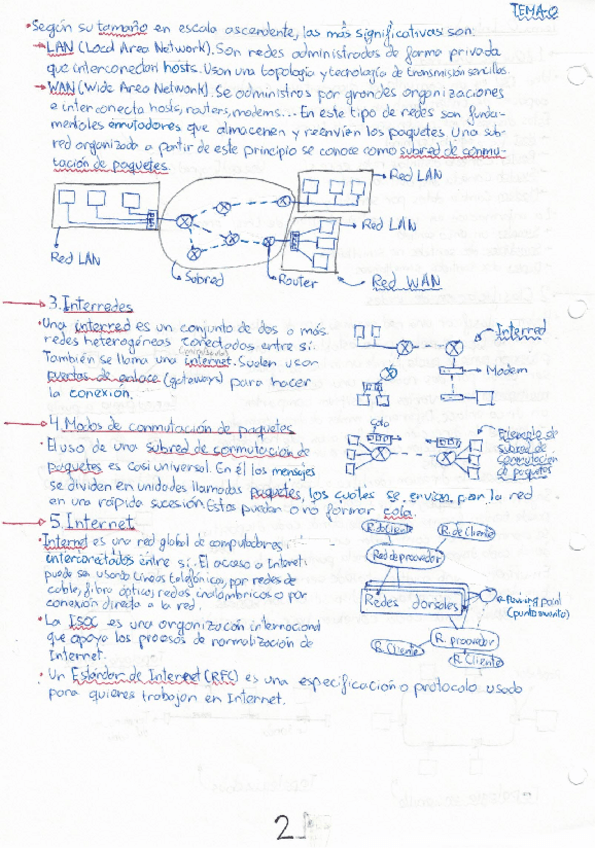 TEMA-0
• Según su tamaño en escala ascendente, las más significativas son:
→ LAN (Local Area Network). Son redes administradas de forma privada
que interconectan hosts. Usan una topología y tecnología de transmisión sencillas.
→ WAN (Wide Area Network). Se administras por grandes organizaciones
e interconecta hosts, routers, modems... En este tipo de redes son funda-
mentales enrutadores que almacenen y reenvíen los paquetes. Una sub-
red organizada a partir de este principio se conoce como subred de conmu-
tación de paquetes.
Red LAN
Red LAN
Red LAN
Subred
Router
Red WAN
3. Interredes
• Una interred es un conjunto de dos o más
redes heterogéneas conectadas entre sí.
También se llama una internet. Suelen usar
puertas de enlace (gateways) para hacer
la conexión.
Interred
Modem
4. Modos de conmutación de paquetes
• El uso de una subred de conmutación de
paquetes es casi universal. En él los mensajes
se dividen en unidades llamadas paquetes, los cuáles se envían por la red
en una rápida sucesión. Estos puedan o no formar cola.
Cola
Ejemplo de
subred de
conmutación
de paquetes
5. Internet
• Internet es una red global de computadoras
interconectadas entre sí. El acceso a Internet
puede ser usando líneas telefónicas, por redes de
cable, fibra óptica, redes inalámbricas o por
conexión directa a la red.
• La ISOC es una organización internacional
que apoya los procesos de normalización de
Internet.
• Un Estándar de Internet (RFC) es una especificación o protocolo usado
para quienes trabajan en Internet.
R. de Cliente
R. de Cliente
Red de proveedor
Redes dorsales
Peering point
(punto neutro)
R. proveedor
R. Cliente
R. Cliente
2